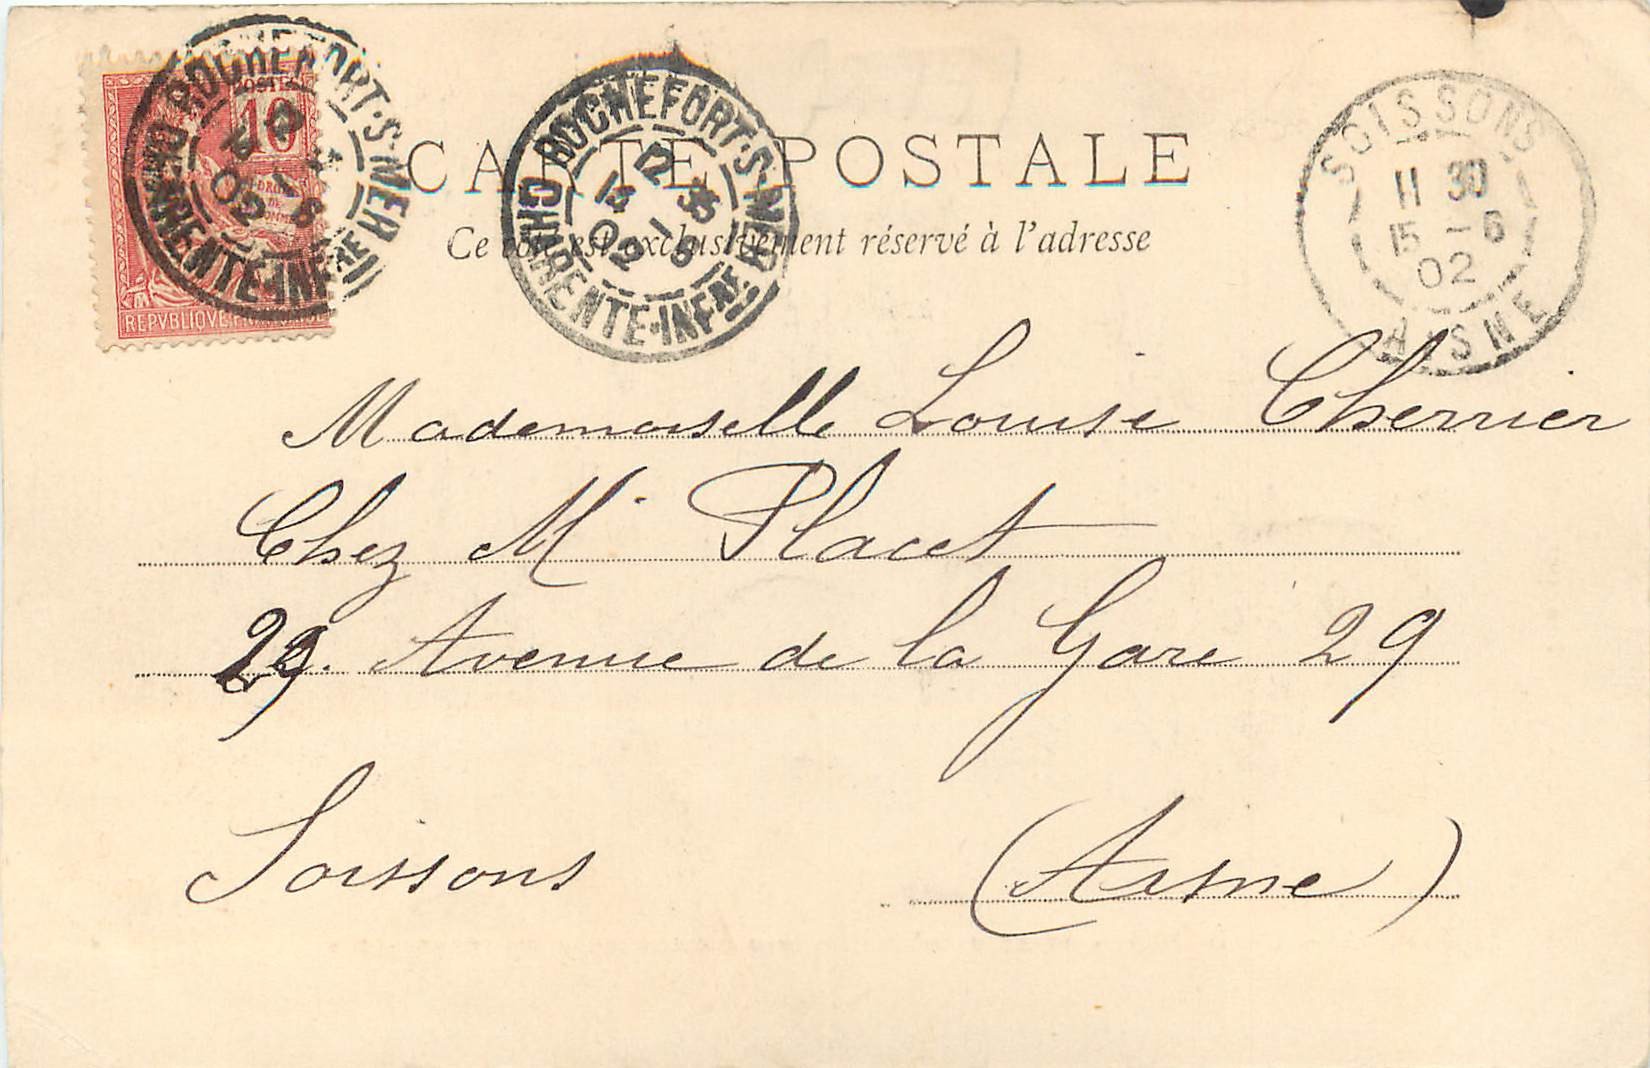 POSTES
10
DROITS
DE
REPVBLIQVE FRANÇAISE
ROCHEFORT-S-MER
02
CHARENTE-INFRE
ROCHEFORT-S-MER
12 35
02
CHARENTE-INFRE
SOISSONS
11 30
15 - 6
02
AISNE
CARTE POSTALE
Ce côté est exclusivement réservé à l'adresse
Mademoiselle Louise Cherrier
Chez Mr Placet
29. Avenue de la Gare 29
Soissons (Aisne)